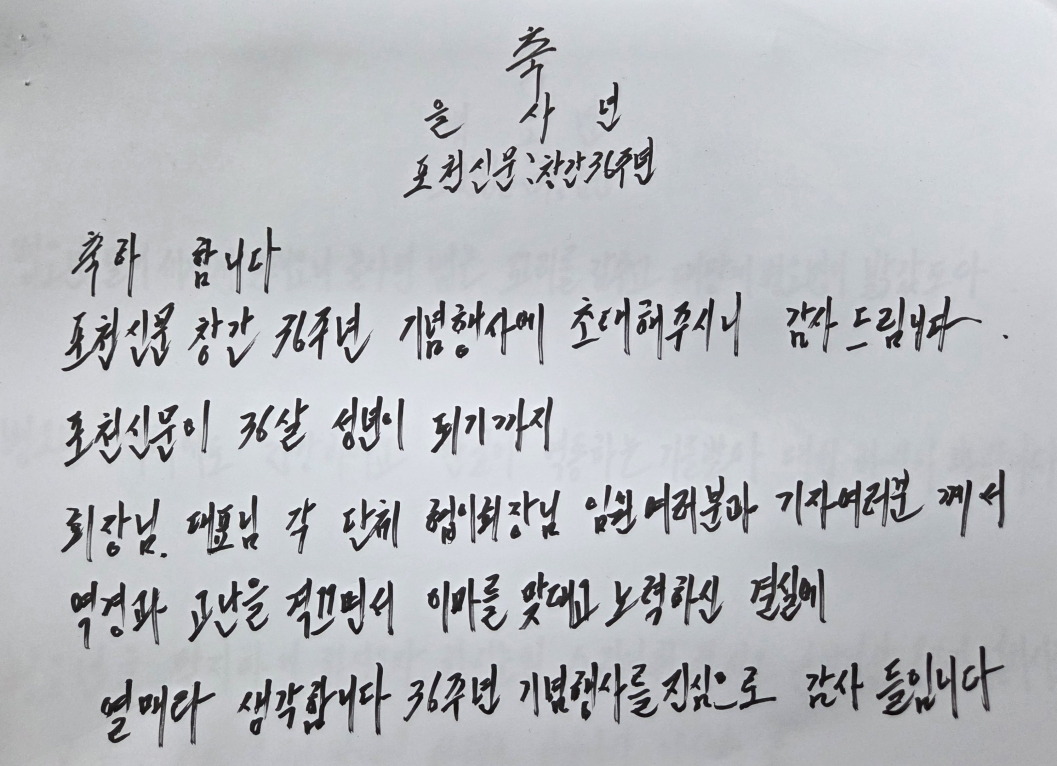 축
을 사 년
포천신문 창간36주년
축하 합니다
포천신문 창간 36주년 기념행사에 초대해주시니 감사 드립니다.
포천신문이 36살 성년이 되기까지
회장님. 대표님 각 단체 협이회장님 임원 여러분과 기자여러분 께서
역경과 고난을 격끄면서 이마를 맞대고 노력하신 결실에
열매라 생각합니다 36주년 기념행사를 진심으로 감사 들입니다